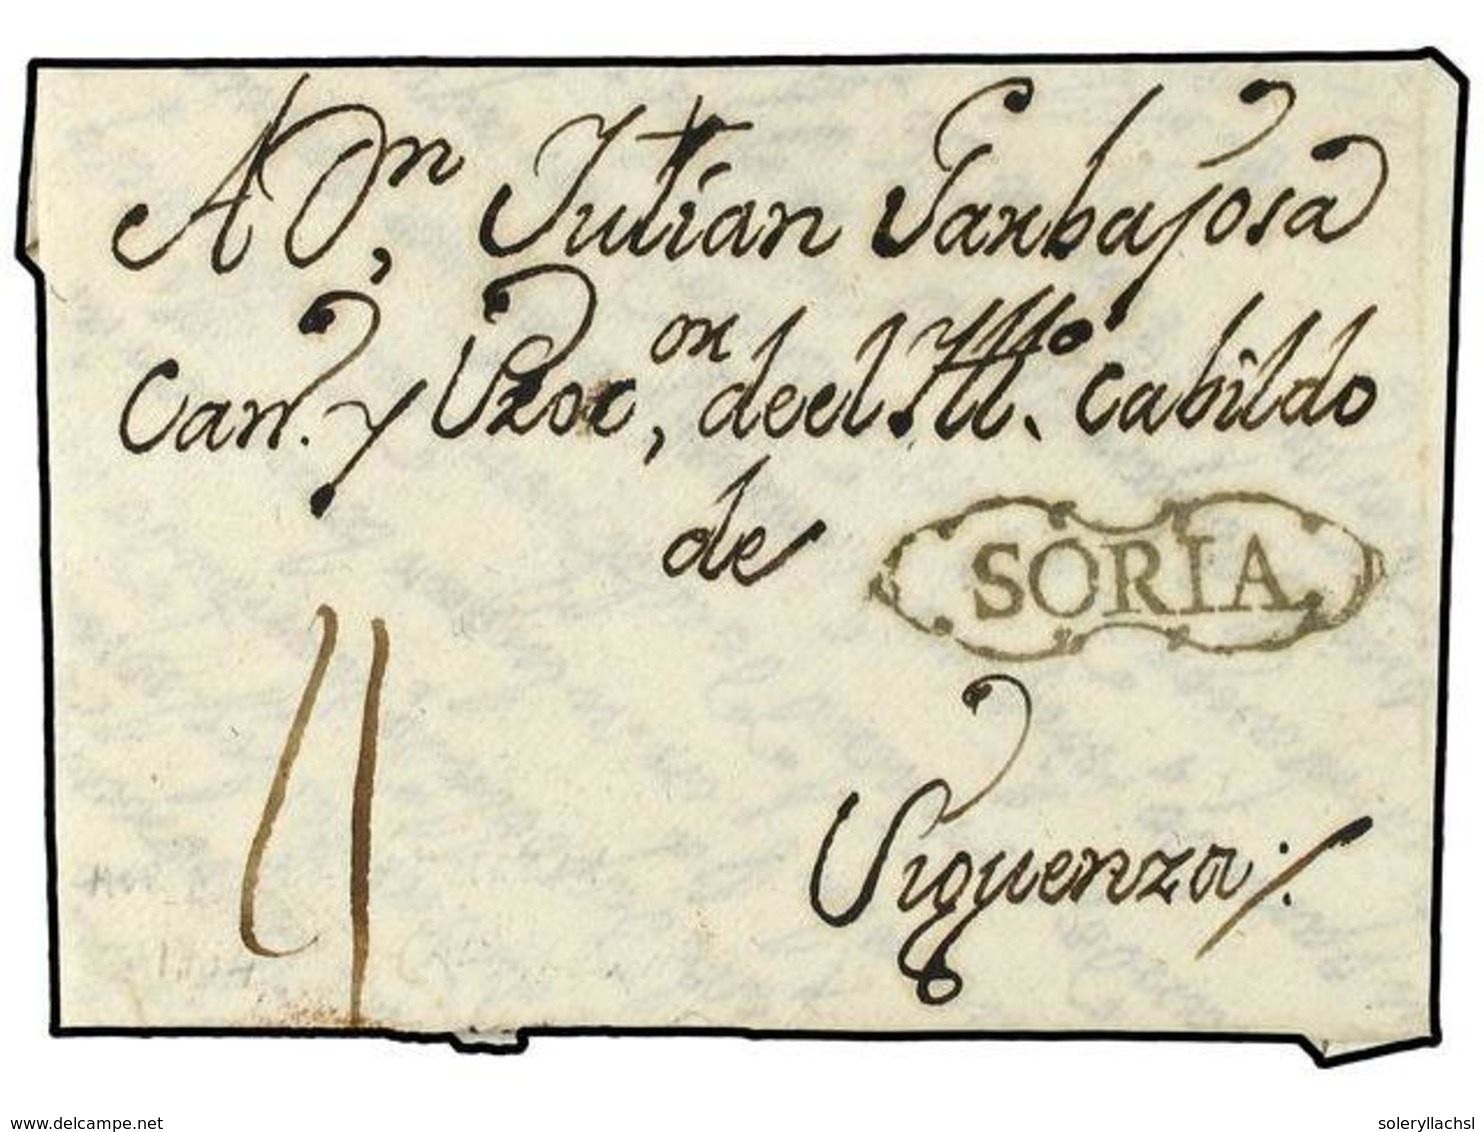 A Dn, Julian Garbajosa
Can. y Proc,or deel Ill.mo cabildo
de
SORIA
Siguenza
4
delcampe.net
soleryllachsl